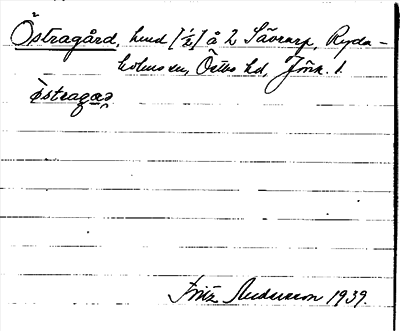 Östragård, hmd [½] å 2 Sävrarp, Ryda-
holms sn, Östbo hd, Jönk. l.
östragɑɑ̯
Fritz Anderson 1939.